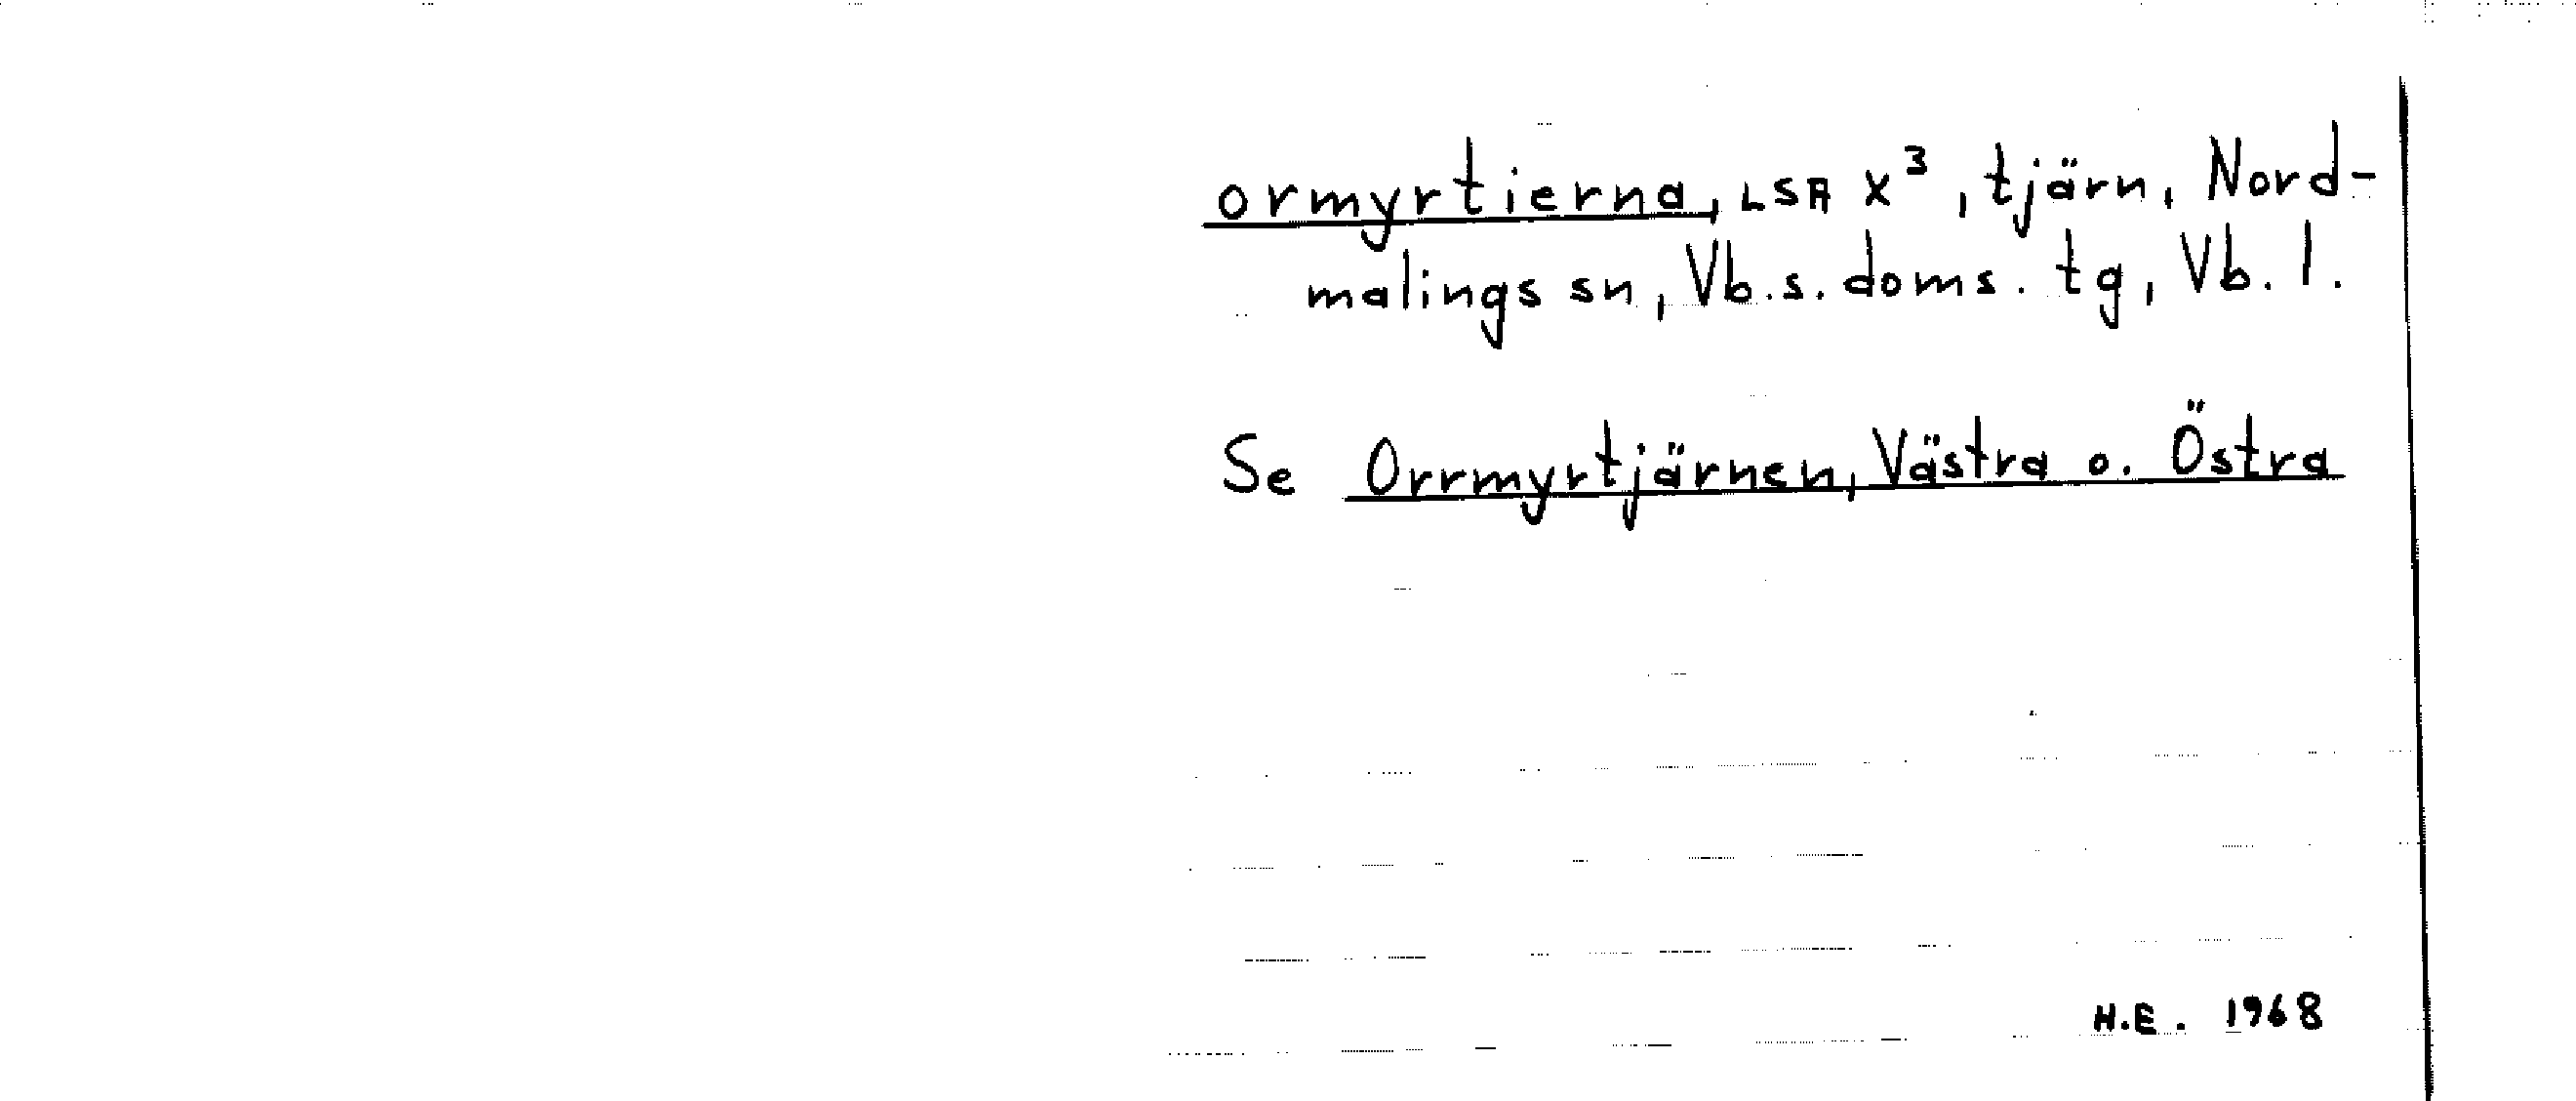 ormyrtierna, LSA X³, tjärn, Nord-
malings sn, Vb.s. doms. tg, Vb. l.
Se Orrmyrtjärnen, Västra o. Östra
H.E. 1968